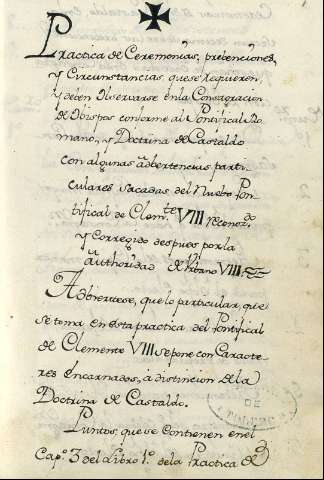 Practica de Ceremonias, prebenciones,
y Circunstancias, que se requieren,
y deben Observarse en la Consagracion
de Obispos conforme al Pontifical Ro-
mano, y Doctrina de Castaldo
con algunas adbertencias parti-
culares sacadas del Nuebo Pon-
tifical de Clemte VIII reconodo
y Corregido despues por la
authoridad de Urbano VIII
Adbiertese, que lo particular, que
se toma en esta practica del Pontifical
de Clemente VIII se pone con Caracte-
res Encarnados, a distincion de la
Doctrina de Castaldo.
Puntos, que se contienen en el
Capo. 3 del Libro 1o. de la Practica de